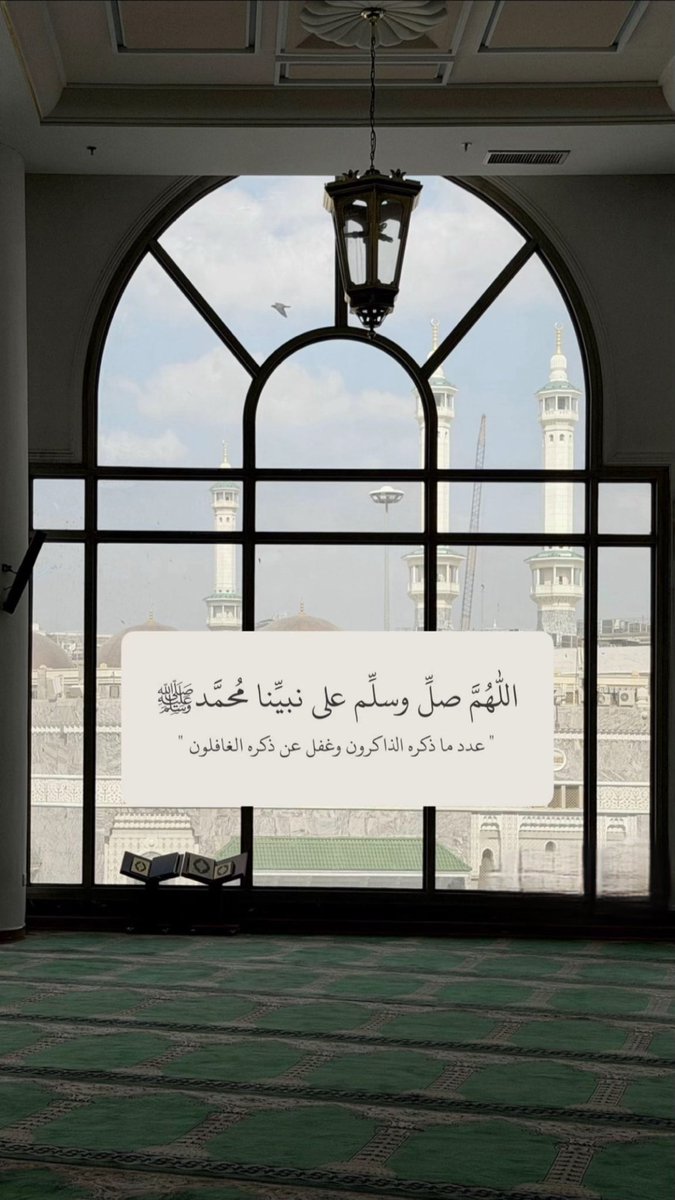 اللّٰهُمَّ صلِّ وسلِّم على نبيِّنا مُحمَّد ﷺ
" عدد ما ذكره الذاكرون وغفل عن ذكره الغافلون "